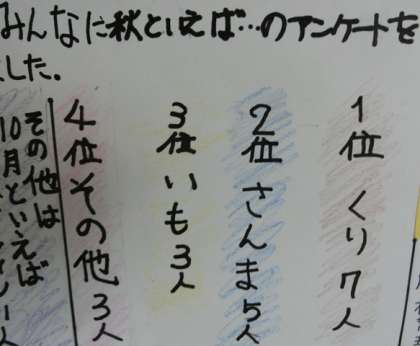 みんなに秋といえば…のアンケートを
した。
1位 くり7人
2位 さんま5人
3位 いも3人
4位 その他3人
その他は
10月といえば